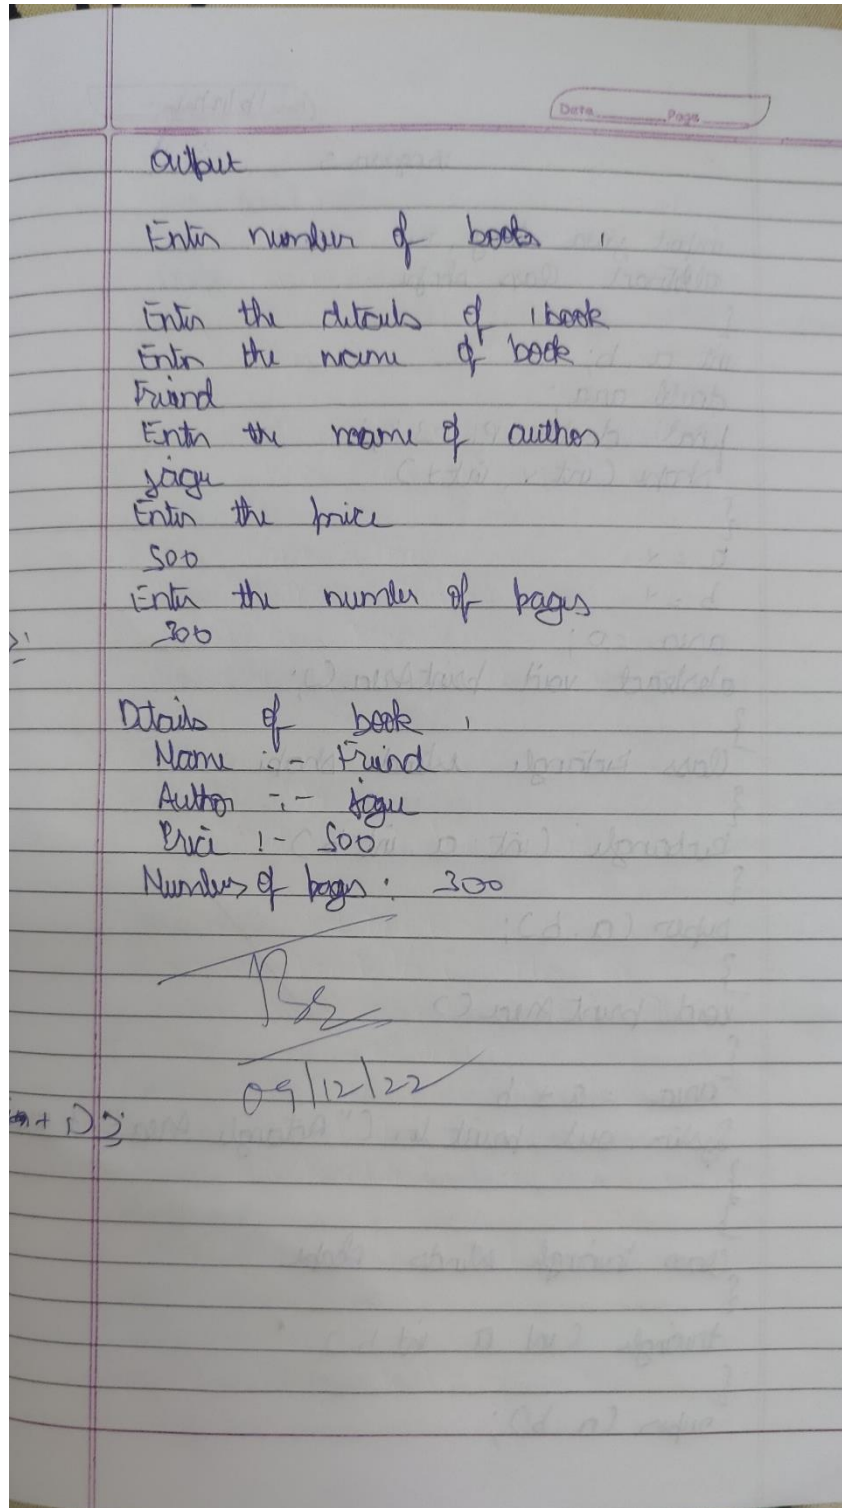 Date Page
Output
Enter number of books 1
Enter the details of 1 book
Enter the name of book
Friend
Enter the name of author
jagu
Enter the price
500
Enter the number of pages
300
Details of book 1
Name :- Friend
Author :- jagu
Price :- 500
Number of pages : 300
09/12/22
+ 1) );